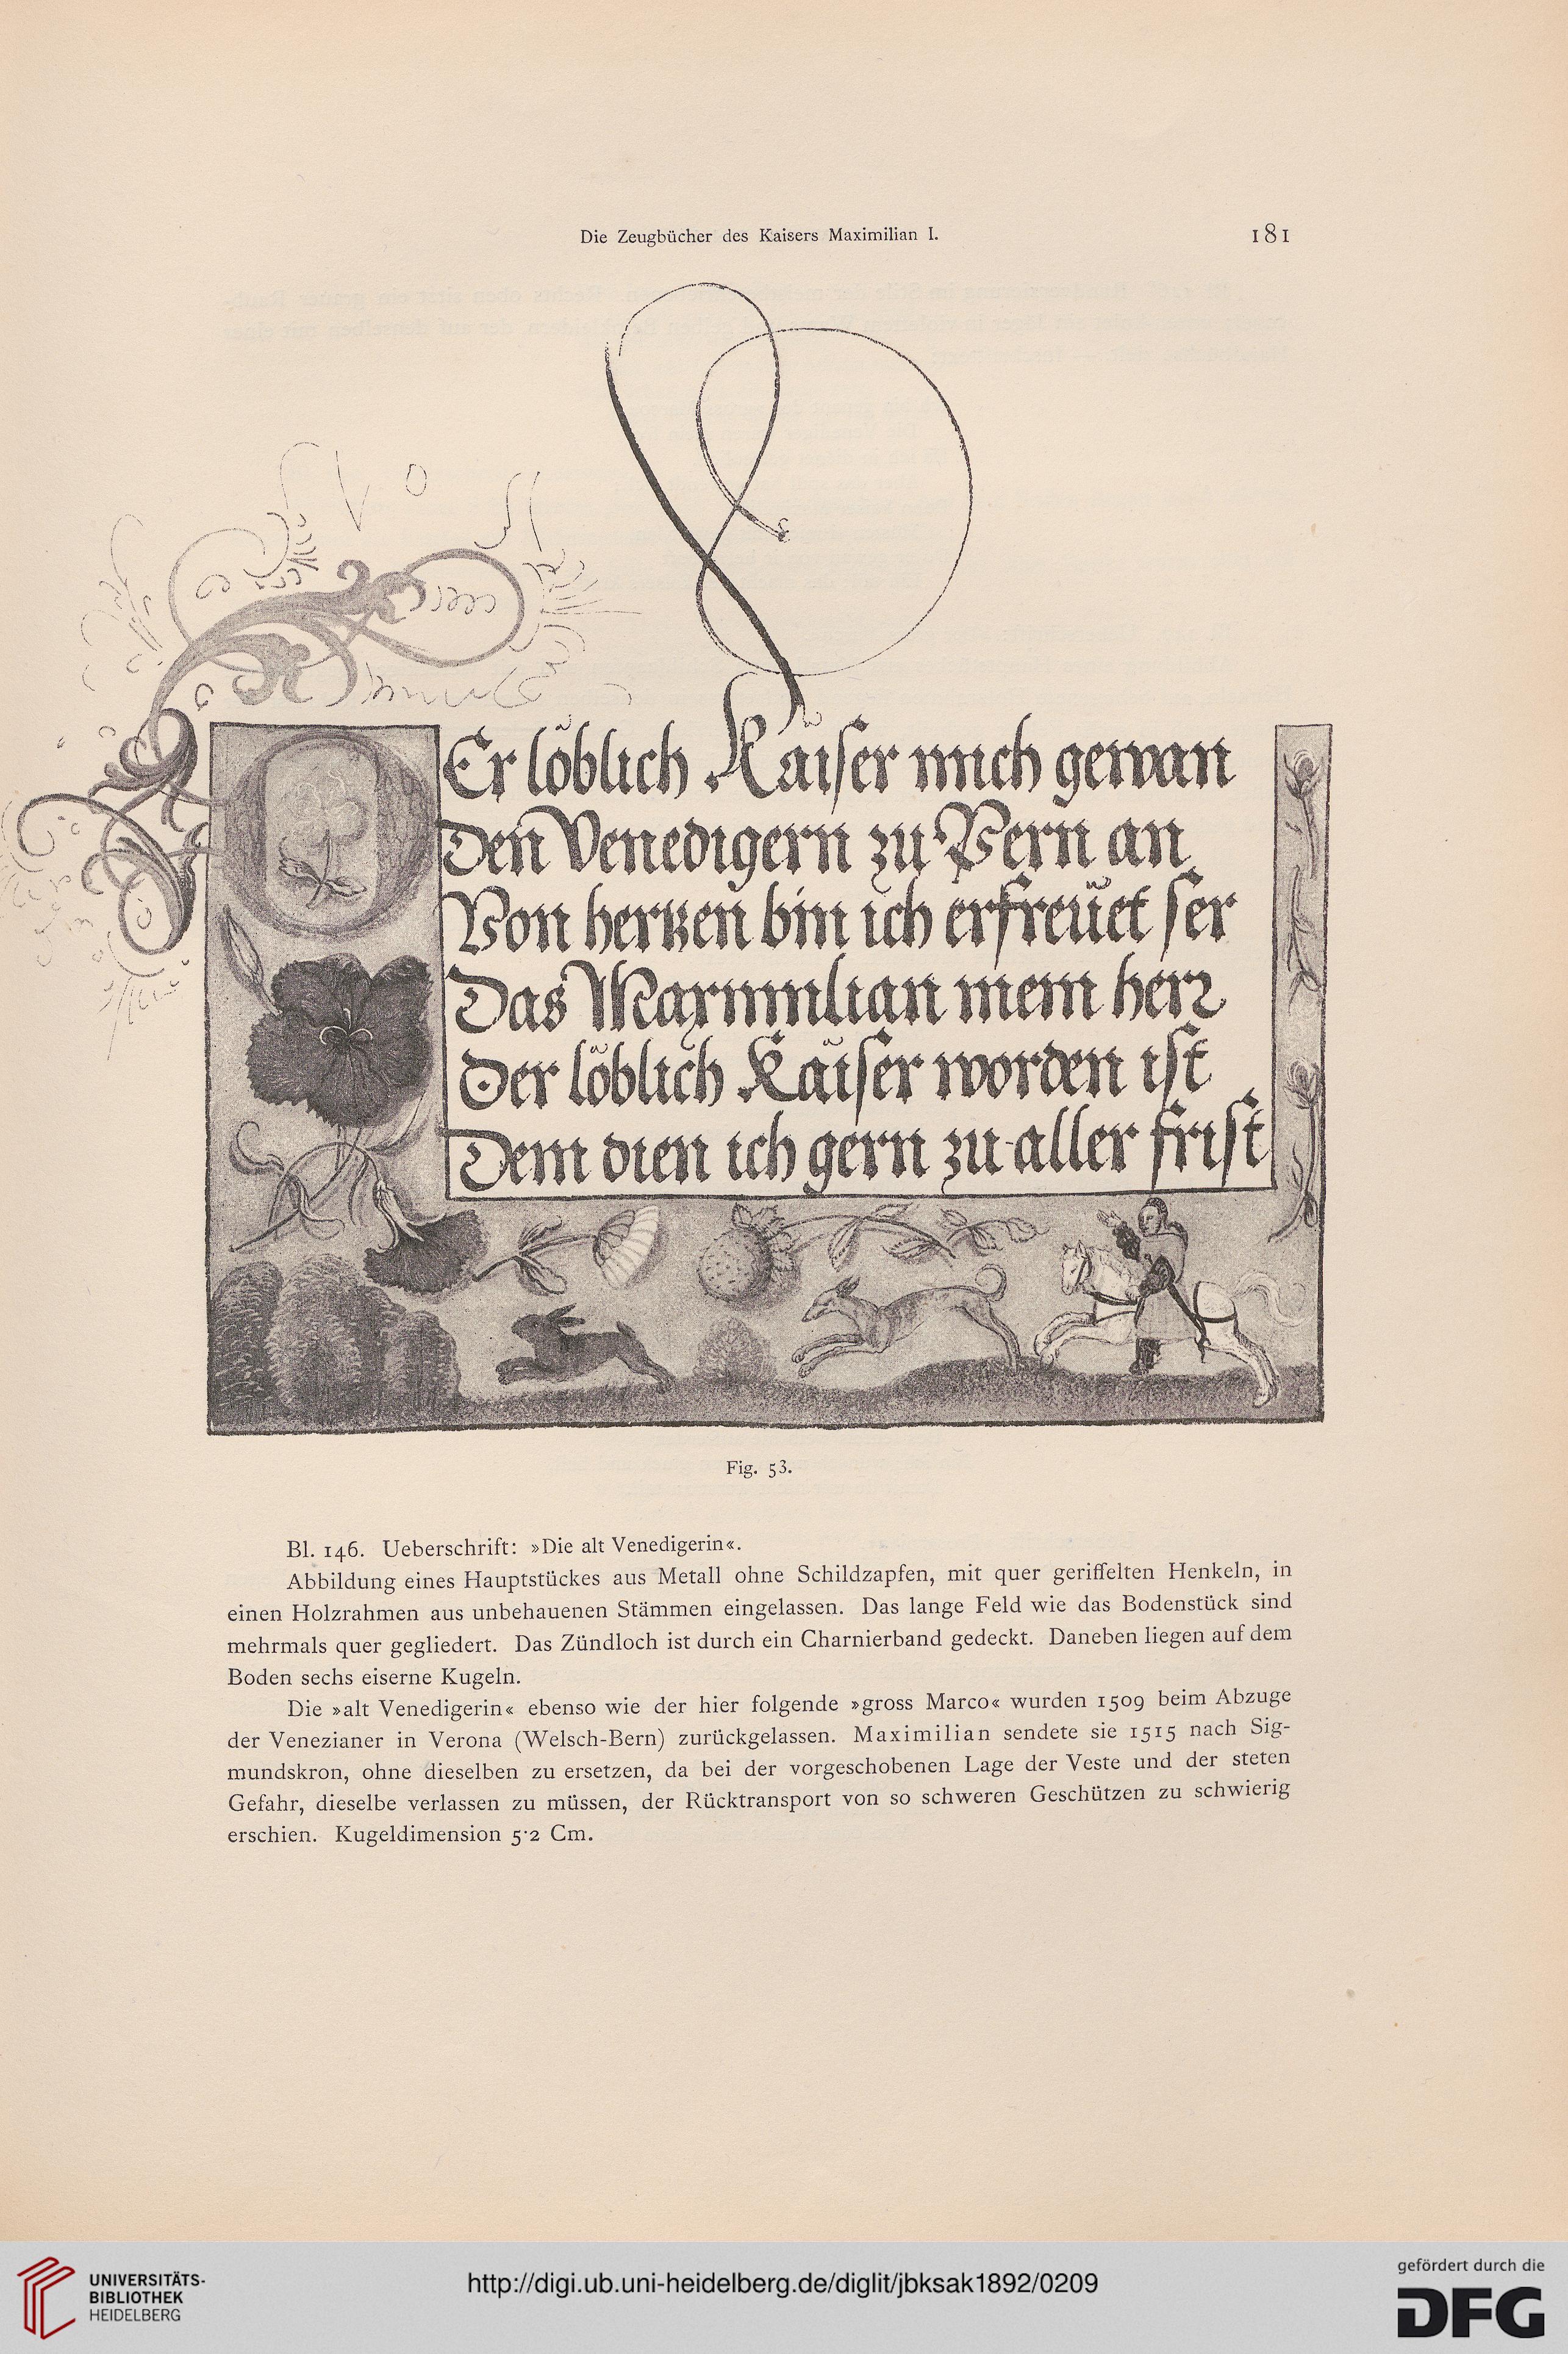 Die Zeugbücher des Kaisers Maximilian I.
181
Er löblich Kaiser mich gewan
Den Venedigern zu Bern an
Von hertzen bin ich erfreuet ser
Das Maxymilian mein herr
Der löblich Kaiser worden ist
Dem dien ich gern zu aller frist
Fig. 53.
Bl. 146. Ueberschrift: »Die alt Venedigerin«.
Abbildung eines Hauptstückes aus Metall ohne Schildzapfen, mit quer geriffelten Henkeln, in
einen Holzrahmen aus unbehauenen Stämmen eingelassen. Das lange Feld wie das Bodenstück sind
mehrmals quer gegliedert. Das Zündloch ist durch ein Charnierband gedeckt. Daneben liegen auf dem
Boden sechs eiserne Kugeln.
Die »alt Venedigerin« ebenso wie der hier folgende »gross Marco« wurden 1509 beim Abzuge
der Venezianer in Verona (Welsch-Bern) zurückgelassen. Maximilian sendete sie 1515 nach Sig-
mundskron, ohne dieselben zu ersetzen, da bei der vorgeschobenen Lage der Veste und der steten
Gefahr, dieselbe verlassen zu müssen, der Rücktransport von so schweren Geschützen zu schwierig
erschien. Kugeldimension 5·2 Cm.
UNIVERSITÄTS-
BIBLIOTHEK
HEIDELBERG
http://digi.ub.uni-heidelberg.de/diglit/jbksak1892/0209
gefördert durch die
DFG